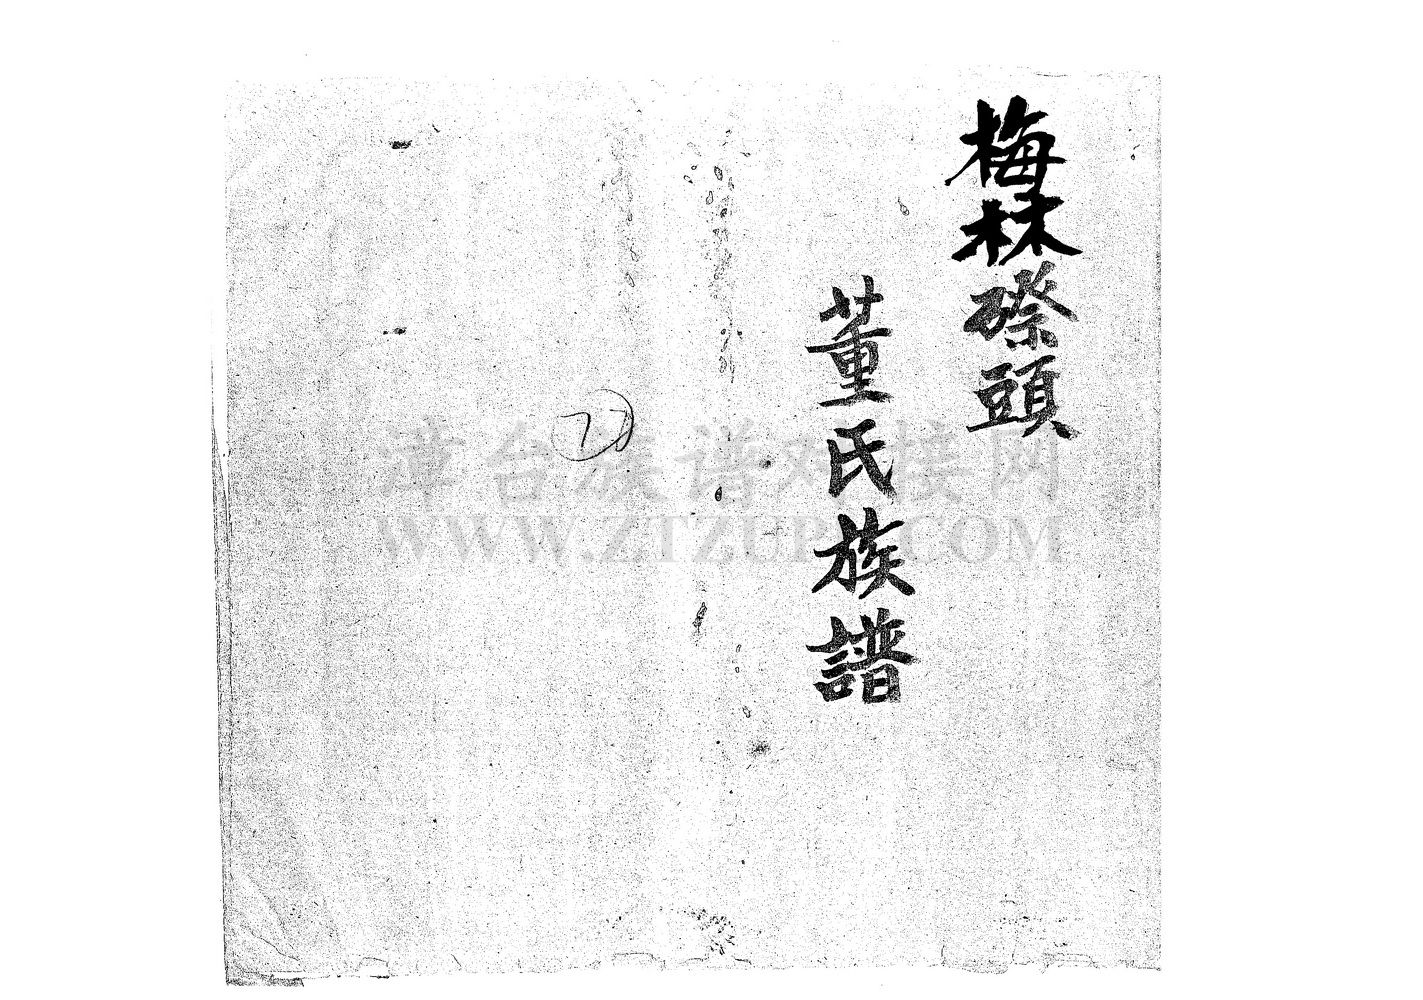 梅林磜頭
董氏族譜
77
漳台族谱对接网
WWW.ZTZUPU.COM